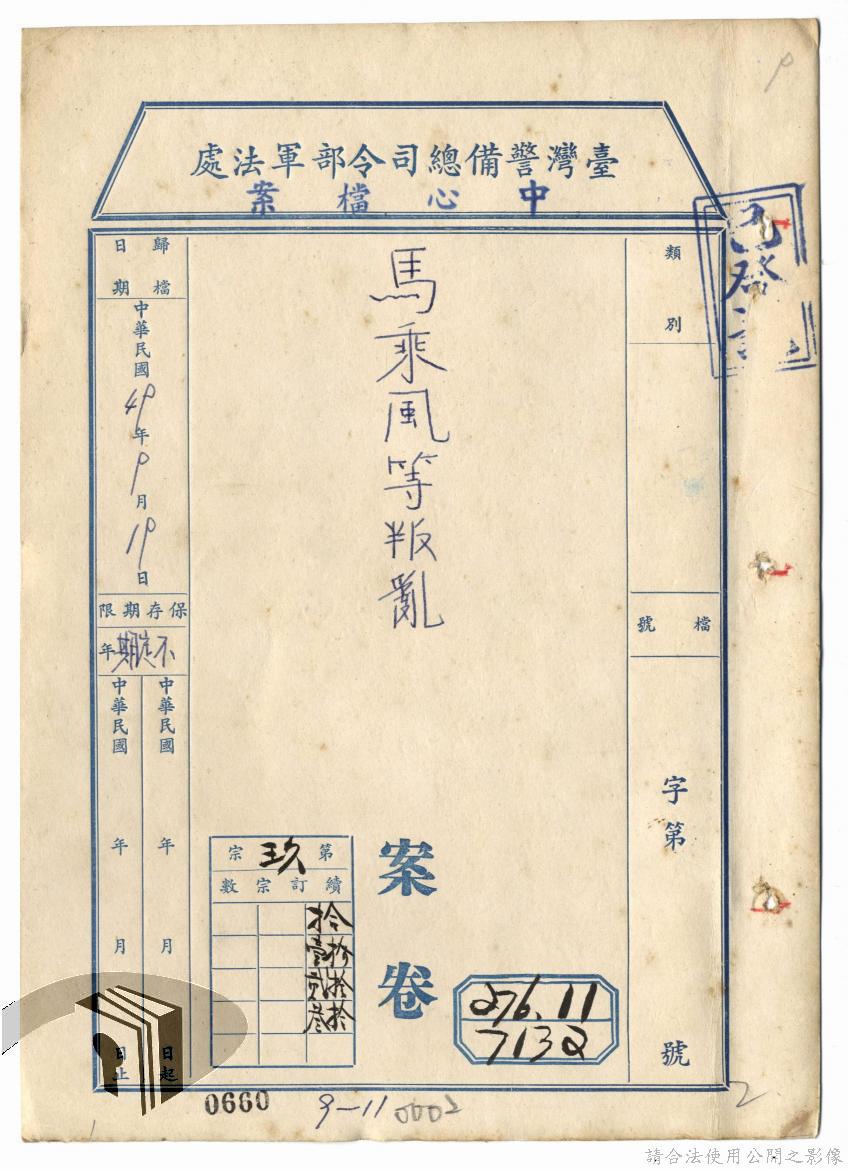 臺灣警備總司令部軍法處
中心檔案
類別
檔號
字第
號
馬乘風等叛亂
案卷
第玖宗
續訂宗數
拾
拾壹
拾貳
拾叁
276.11
7132
歸檔日期
中華民國49年9月19日
保存期限
不定期年
中華民國 年 月 日起
中華民國 年 月 日止
0660
9-11
0002
2
請合法使用公開之影像